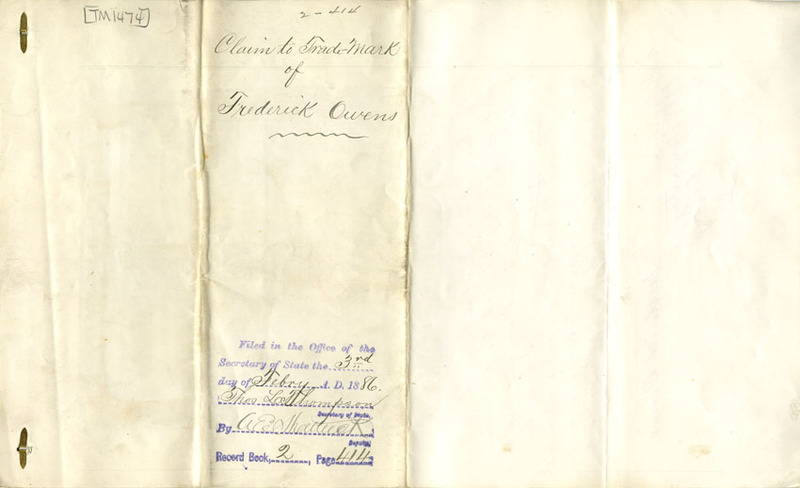 [TM1474]
2-414
Claim to Trade-Mark
of
Frederick Owens
Filed in the Office of the
Secretary of State the 3rd
day of Febry A. D. 1886.
Thos L. Thompson
Secretary of State.
By
Deputy.
Record Book, 2, Page 414